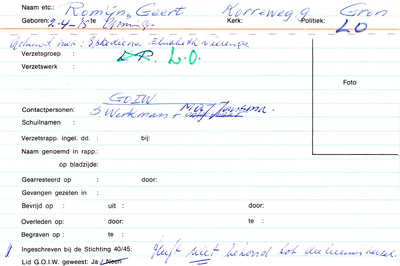 Naam etc.: Romijn, Geert Korreweg 9 Gron
Geboren: 2-4-15 te Kerk: Politiek: LO
Gehuwd met:
Verzetsgroep: L.O.
Verzetswerk :
Foto
GOIW
Contactpersonen: S Werkman +
Schuilnaam :
Verzetsrapp. ingel. dd. : bij:
Naam genoemd in rapp.:
op bladzijde:
Gearresteerd op : door:
Gevangen gezeten in :
Bevrijd op : uit : door:
Overleden op : door: te :
Begraven op : te :
Ingeschreven bij de Stichting 40/45: Heeft niet behoord tot
Lid G.O.I.W. geweest: Ja / Neen